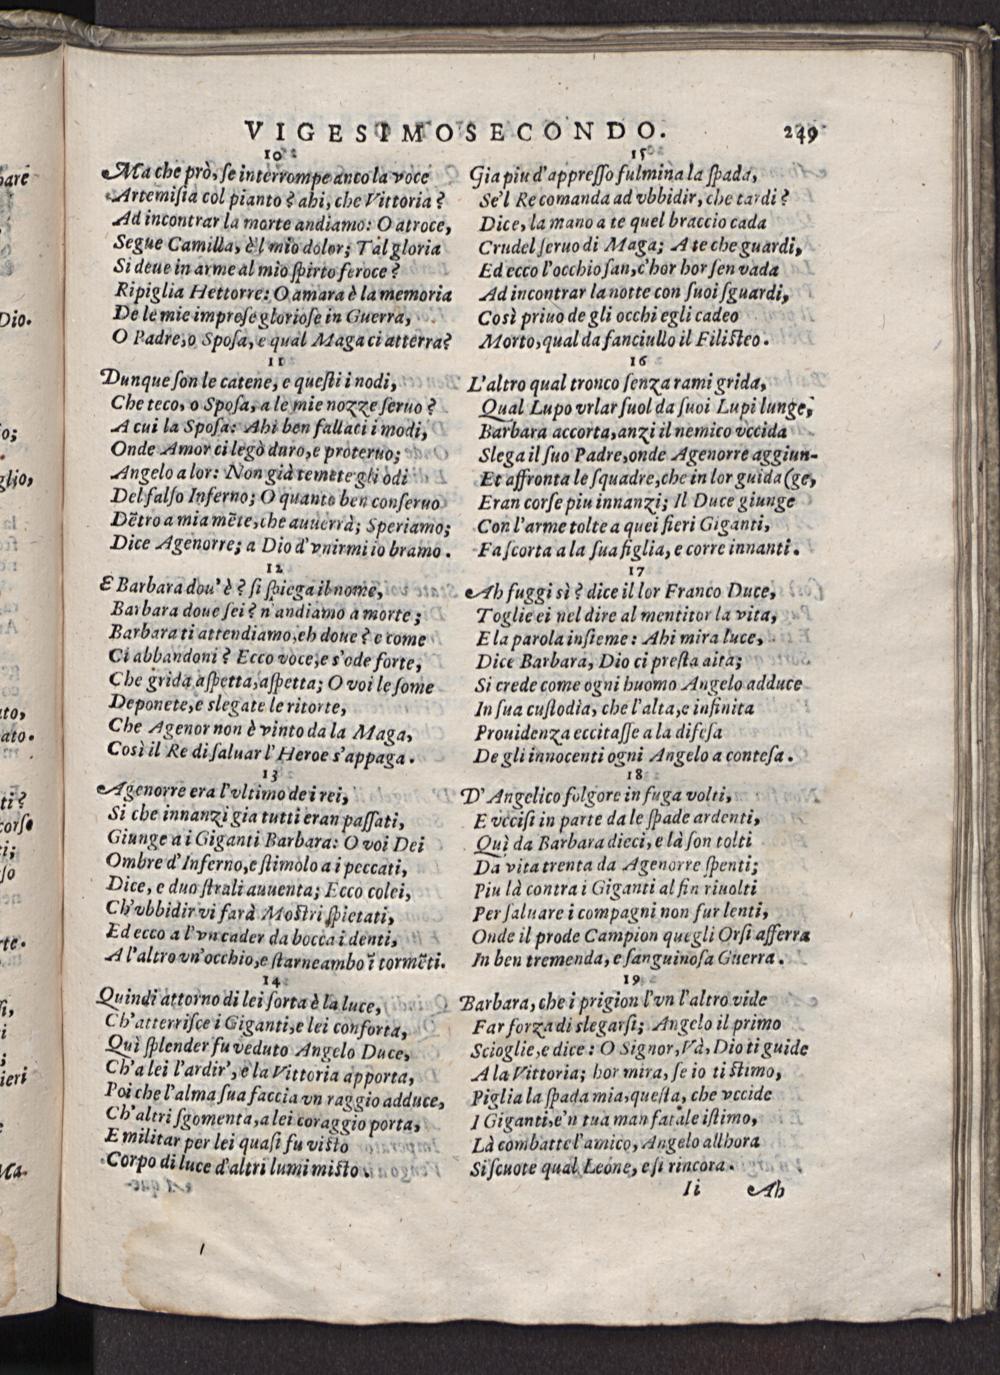 VIGESIMOSECONDO. 249
10
Ma che prò, se interrompe anco la voce
Artemisia col pianto? ahi, che Vittoria?
Ad incontrar la morte andiamo: O atroce,
Segue Camilla, è'l mio dolor; Tal gloria
Si deue in arme al mio spirto feroce?
Ripiglia Hettorre: O amara è la memoria
De le mie imprese gloriose in Guerra,
O Padre, o Sposa, e qual Maga ci atterra?
11
Dunque son le catene, e questi i nodi,
Che teco, o Sposa, a le mie nozze seruo?
A cui la Sposa: Ahi ben fallaci i modi,
Onde Amor ci legò duro, e proteruo;
Angelo a lor: Non già temete gli odi
Del falso Inferno; O quanto ben conseruo
Dẽtro a mia mẽte, che auuerrà; Speriamo;
Dice Agenorre; a Dio d'vnirmi io bramo.
12
E Barbara dou'è? si spiega il nome,
Barbara doue sei? n'andiamo a morte;
Barbara ti attendiamo, eh doue? e come
Ci abbandoni? Ecco voce, e s'ode forte,
Che grida aspetta, aspetta; O voi le some
Deponete, e slegate le ritorte,
Che Agenor non è vinto da la Maga,
Così il Re di saluar l'Heroe s'appaga.
13
Agenorre era l'vltimo de i rei,
Si che innanzi gia tutti eran passati,
Giunge a i Giganti Barbara: O voi Dei
Ombre d'Inferno, e stimolo a i peccati,
Dice, e duo strali auuenta; Ecco colei,
Ch'vbbidir vi farà Mostri spietati,
Ed ecco a l'vn cader da bocca i denti,
A l'altro vn'occhio, e starne ambo ĩ tormẽti.
14
Quindi attorno di lei sorta è la luce,
Ch'atterrisce i Giganti, e lei conforta,
Quì splender fu veduto Angelo Duce,
Ch'a lei l'ardir', e la Vittoria apporta,
Poi che l'alma sua faccia vn raggio adduce,
Ch'altri sgomenta, a lei coraggio porta,
E militar per lei quasi fu visto
Corpo di luce d'altri lumi misto.
15
Gia piu d'appresso fulmina la spada,
Se'l Re comanda ad vbbidir, che tardi?
Dice, la mano a te quel braccio cada
Crudel seruo di Maga; A te che guardi,
Ed ecco l'occhio san, c'hor hor sen vada
Ad incontrar la notte con suoi sguardi,
Così priuo de gli occhi egli cadeo
Morto, qual da fanciullo il Filisteo.
16
L'altro qual tronco senza rami grida,
Qual Lupo vrlar suol da suoi Lupi lunge,
Barbara accorta, anzi il nemico vccida
Slega il suo Padre, onde Agenorre aggiun-
Et affronta le squadre, che in lor guida (ge,
Eran corse piu innanzi; Il Duce giunge
Con l'arme tolte a quei fieri Giganti,
Fa scorta a la sua figlia, e corre innanti.
17
Ah fuggi sì? dice il lor Franco Duce,
Toglie ei nel dire al mentitor la vita,
E la parola insieme: Ahi mira luce,
Dice Barbara, Dio ci presta aita;
Si crede come ogni huomo Angelo adduce
In sua custodia, che l'alta, e infinita
Prouidenza eccitasse a la difesa
De gli innocenti ogni Angelo a contesa.
18
D'Angelico folgore in fuga volti,
E vccisi in parte da le spade ardenti,
Quì da Barbara dieci, e là son tolti
Da vita trenta da Agenorre spenti;
Piu là contra i Giganti al fin riuolti
Per saluare i compagni non fur lenti,
Onde il prode Campion quegli Orsi afferra
In ben tremenda, e sanguinosa Guerra.
19
Barbara, che i prigion l'vn l'altro vide
Far forza di slegarsi; Angelo il primo
Scioglie, e dice: O Signor, Và, Dio ti guide
A la Vittoria; hor mira, se io ti stimo,
Piglia la spada mia, questa, che vccide
I Giganti, e'n tua man fatale istimo,
Là combatte l'amico, Angelo allhora
Si scuote qual Leone, e si rincora.
Ii Ah